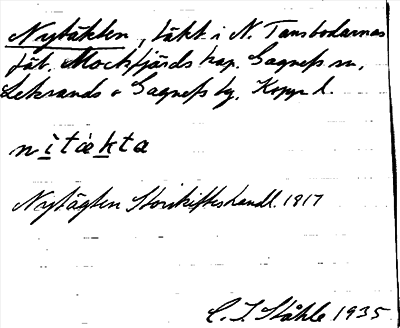 Nytäkten, täkt i N. Tansbodarnas
fäb. Mockfjärds kap. Gagnefs sn,
Leksands o Gagnefs tg, Kopp. l.
nìtäkta
Nytägten Storskifteshandl. 1817
C. I. Ståhle 1935